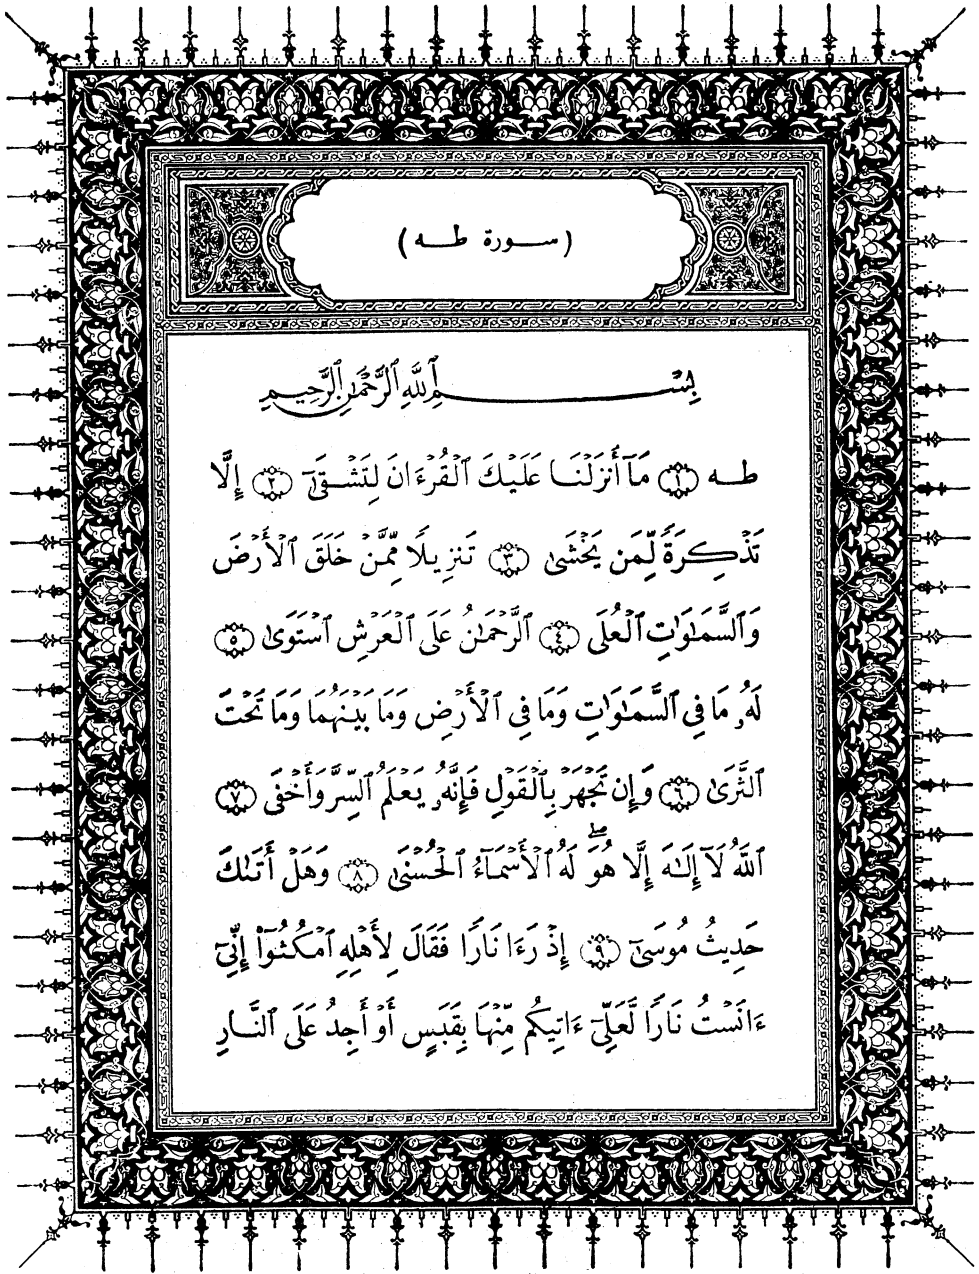 (سورة طه)
بِسْمِ ٱللَّهِ ٱلرَّحْمَٰنِ ٱلرَّحِيمِ
طه ١ مَآ أَنزَلْنَا عَلَيْكَ ٱلْقُرْءَانَ لِتَشْقَىٰٓ ٢ إِلَّا
تَذْكِرَةً لِّمَن يَخْشَىٰ ٣ تَنزِيلًا مِّمَّنْ خَلَقَ ٱلْأَرْضَ
وَٱلسَّمَٰوَٰتِ ٱلْعُلَى ٤ ٱلرَّحْمَٰنُ عَلَى ٱلْعَرْشِ ٱسْتَوَىٰ ٥
لَهُۥ مَا فِى ٱلسَّمَٰوَٰتِ وَمَا فِى ٱلْأَرْضِ وَمَا بَيْنَهُمَا وَمَا تَحْتَ
ٱلثَّرَىٰ ٦ وَإِن تَجْهَرْ بِٱلْقَوْلِ فَإِنَّهُۥ يَعْلَمُ ٱلسِّرَّ وَأَخْفَى ٧
ٱللَّهُ لَآ إِلَٰهَ إِلَّا هُوَۖ لَهُ ٱلْأَسْمَآءُ ٱلْحُسْنَىٰ ٨ وَهَلْ أَتَىٰكَ
حَدِيثُ مُوسَىٰٓ ٩ إِذْ رَءَا نَارًا فَقَالَ لِأَهْلِهِ ٱمْكُثُوٓا۟ إِنِّىٓ
ءَانَسْتُ نَارًا لَّعَلِّىٓ ءَاتِيكُم مِّنْهَا بِقَبَسٍ أَوْ أَجِدُ عَلَى ٱلنَّارِ